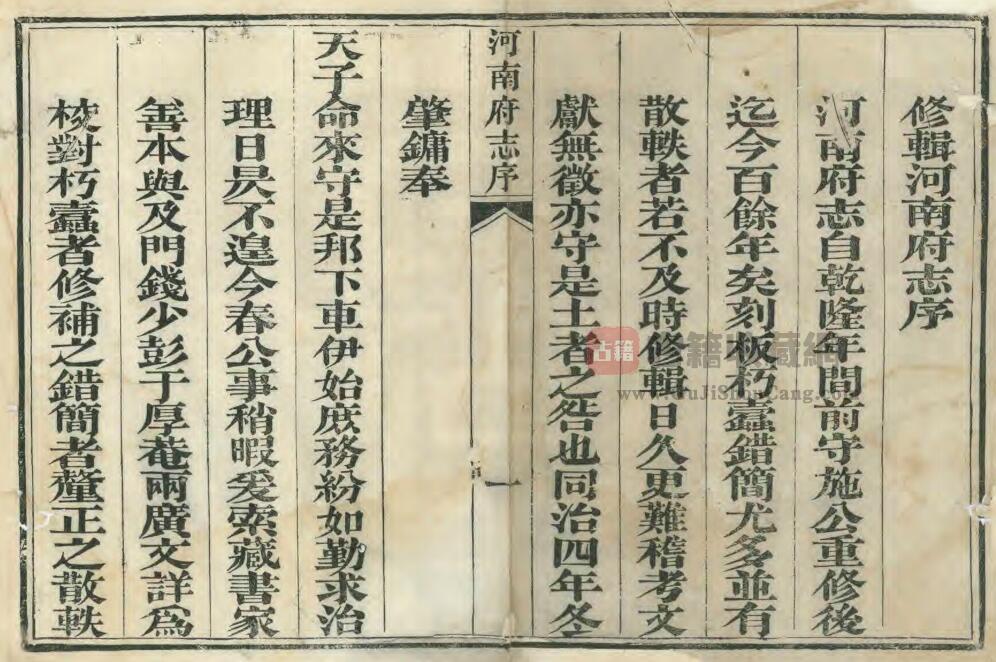 修輯河南府志序
河南府志自乾隆年間前守施公重修後
迄今百餘年矣刻板朽蠹錯簡尤多並有
散軼者若不及時修輯日久更難稽考文
獻無徵亦守是土者之咎也同治四年冬
肇鏞奉
河南府志序
一
天子命來守是邦下車伊始庶務紛如勤求治
理日昃不遑今春公事稍暇爰索藏書家
善本與及門錢少彭于厚菴兩廣文詳為
校對朽蠹者修補之錯簡者釐正之散軼
古籍
www.GuJiShouCang.com